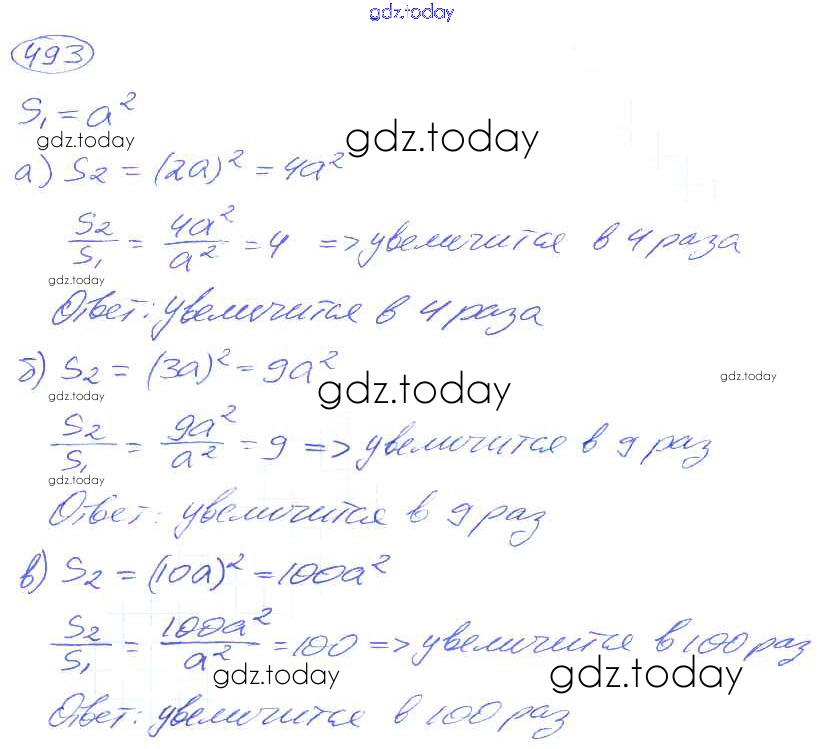 gdz.today
493
S₁ = a²
gdz.today gdz.today
а) S₂ = (2a)² = 4a²
S₂/S₁ = 4a²/a² = 4 => увеличится в 4 раза
gdz.today
Ответ: увеличится в 4 раза
б) S₂ = (3a)² = 9a²
gdz.today gdz.today gdz.today
S₂/S₁ = 9a²/a² = 9 => увеличится в 9 раз
gdz.today
Ответ: увеличится в 9 раз
в) S₂ = (10a)² = 100a²
S₂/S₁ = 100a²/a² = 100 => увеличится в 100 раз
gdz.today gdz.today
Ответ: увеличится в 100 раз